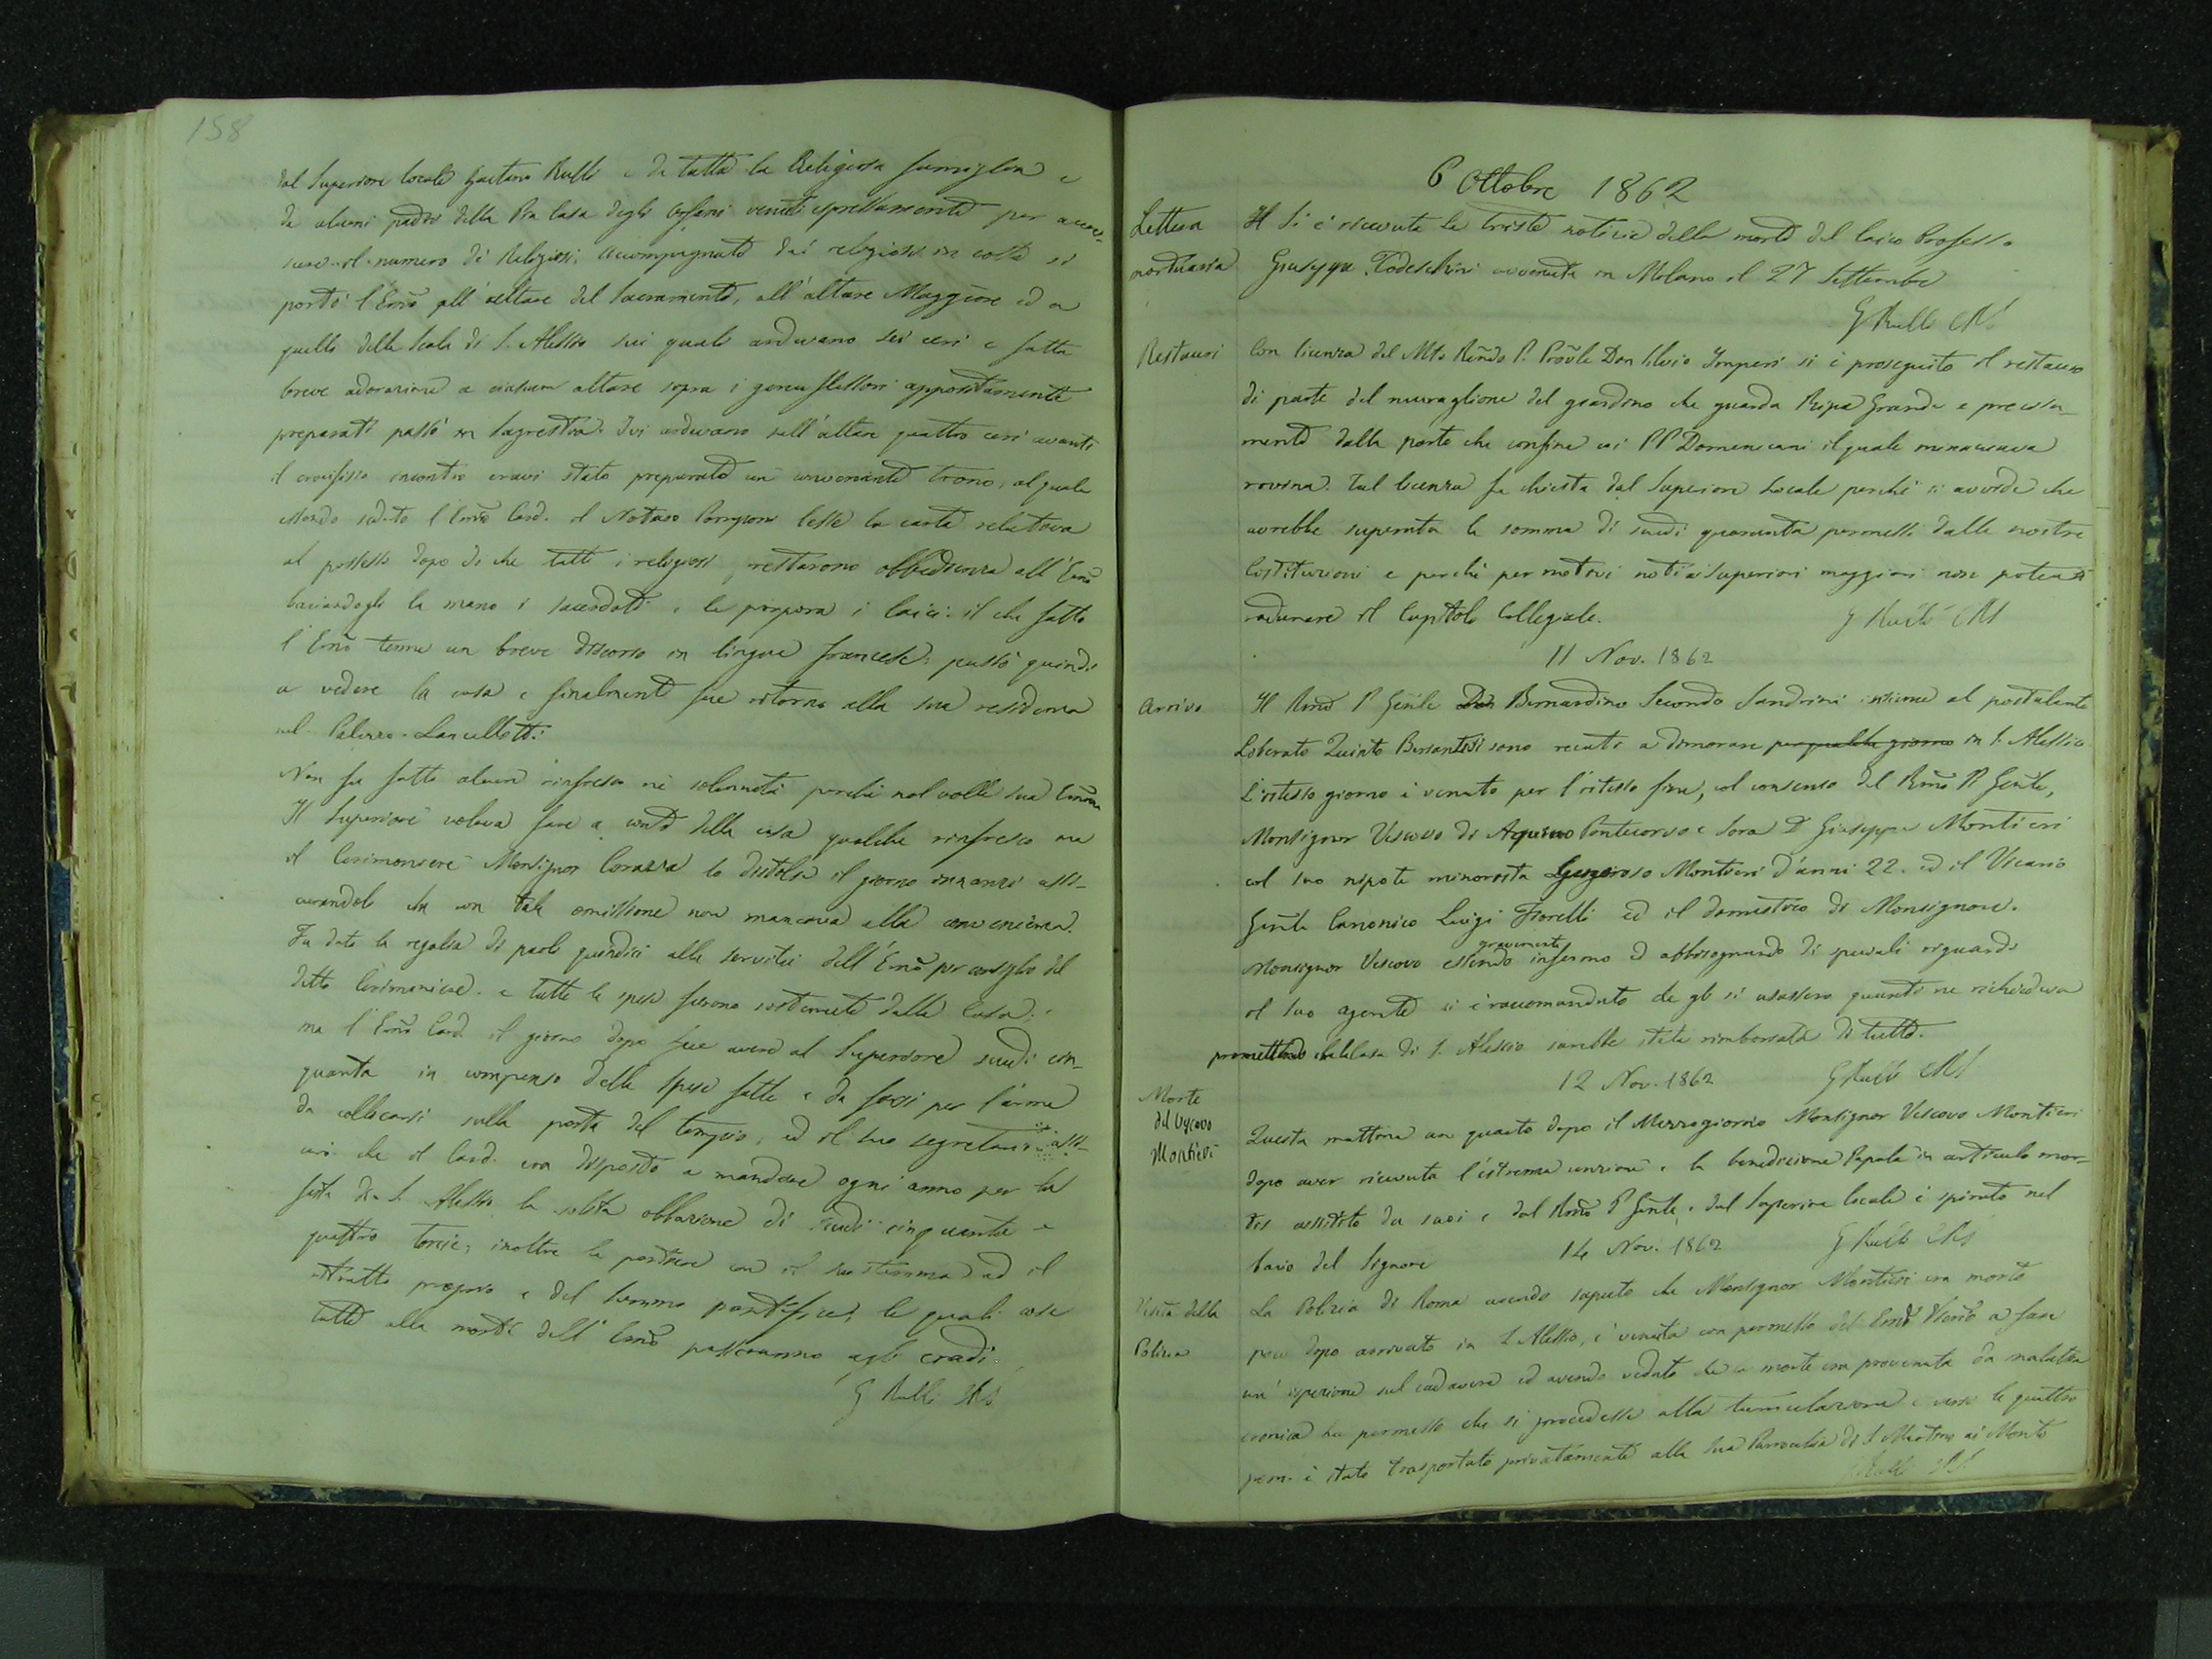 158
dal Superiore locale Gaetano Rulli e da tutta la Religiosa famiglia e
da alcuni padri della Pia Casa degli Orfani venuti espressamente per accre-
scere il numero di Religiosi; accompagnato dai religiosi in cotta si
portò l'Emo all'altare del Sacramento, all'altare Maggiore ed a
quello della Scala di S. Alessio sui quali ardevano sei ceri e fatta
breve adorazione a ciascun altare sopra i genuflessori appositamente
preparati passò in Sagrestia. Ivi ardevano sull'altare quattro ceri avanti
il crocifisso incontro eravi stato preparato un conveniente trono, al quale
essendo seduto l'Emo Card. il Notaro lesse la carta relativa
al possesso dopo di che tutti i religiosi prestarono obbedienza all'Emo
baciandogli la mano i sacerdoti e la porpora i laici: il che fatto
l'Emo tenne un breve discorso in lingua francese: passò quindi
a vedere la casa e finalmente fece ritorno alla sua residenza
nel Palazzo Lancellotti.
Non fu fatto alcun rinfresco nè solennità perchè nol volle Sua Emza
Il Superiore voleva fare a conto della casa qualche rinfresco ma
il Cerimoniere Monsignor Corazza lo distolse il giorno innanzi assi-
curandolo che con tale omissione non mancava alla convenienza.
Fu data la regalia di paoli quindici alla servitù dell'Emo per consiglio del
detto Cerimoniere e tutte le spese furono sostenute dalla Casa:
ma l'Emo Card. il giorno dopo fece avere al Superiore scudi cin-
quanta in compenso delle spese fatte e da farsi per l'arma
da collocarsi sulla porta del tempio, ed il suo segretario assi-
curò che il Card. era disposto a mandare ogni anno per la
festa di S. Alessio la solita oblazione di scudi cinquanta e
quattro torcie; inoltre le portiere con il suo stemma ed il
ritratto proprio e del Sommo pontefice; le quali cose
tutte alla morte dell'Emo passeranno agli eredi.
G Rulli CRS
6 Ottobre 1862
Lettera mortuaria
Il Si è ricevuta la triste notizia della morte del laico Professo
Giuseppe Todeschini avvenuta in Milano il 27 Settembre
G Rulli CRS
Restauri
Con licenza del Mto Rendo P. Provle Don Silvio Imperi si è proseguito il restauro
di parte del muraglione del giardino che guarda Ripa Grande e precisa-
mente dalla parte che confina coi PP Domenicani il quale minacciava
rovina. Tal licenza fu chiesta dal Superiore locale perchè si avvide che
avrebbe superata la somma di scudi quaranta permessi dalle nostre
Costituzioni e perchè per motivi noti ai Superiori maggiori non potea si
radunare il Capitolo Collegiale.
G Rulli CRS
11 Nov. 1862
Arrivo
Il Rmo P Genle Don Bernardino Secondo Sandrini insieme al postulante
Liberato Quinto si sono recati a dimorare per qualche giorno in S. Alessio
L'istesso giorno è venuto per l'istesso fine, col consenso del Rmo P. Genle,
Monsignor Vescovo di Aquino Pontecorvo e Sora D Giuseppe Montieri
col suo nipote minorista Generoso Montieri d'anni 22. ed il Vicario
Genle Canonico Luigi Fiorelli ed il domestico di Monsignore.
Monsignor Vescovo essendo gravemente infermo ed abbisognando di speciali riguardi
il suo agente si è raccomandato che gli si usassero quanti ne richiedeva
promettendo che la Casa di S. Alessio sarebbe stata rimborsata di tutto.
G Rulli CRS
12 Nov. 1862
Morte del Vescovo Montieri
Questa mattina un quarto dopo il Mezzogiorno Monsignor Vescovo Montieri
dopo aver ricevuta l'estrema unzione e la benedizione Papale in articulo mor-
tis assistito da suoi e dal Rmo P Genle e dal Superiore locale è spirato nel
bacio del Signore
G Rulli CRS
14 Nov. 1862
Visita della Polizia
La Polizia di Roma avendo saputo che Monsignor Montieri era morto
poco dopo arrivato in S Alessio, è venuta con permesso del Emo Vicario a fare
un'ispezione sul cadavere ed avendo veduto che la morte era provenuta da malattia
cronica ha permesso che si procedesse alla tumulazione e verso le quattro
pom. è stato trasportato privatamente alla sua Parrocchia di S Martino ai Monti
G Rulli CRS